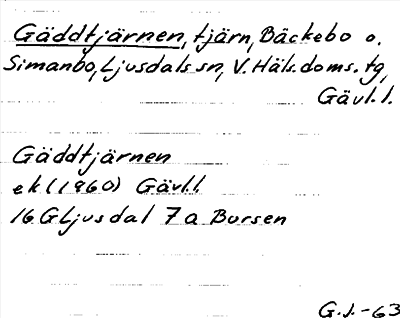 Gäddtjärnen, tjärn, Bäckebo o.
Simanbo, Ljusdals sn, V. Häls. doms. tg,
Gävl. l.
Gäddtjärnen
ek (1960) Gävl. l.
16 G Ljusdal 7 a Bursen
G.J.-63